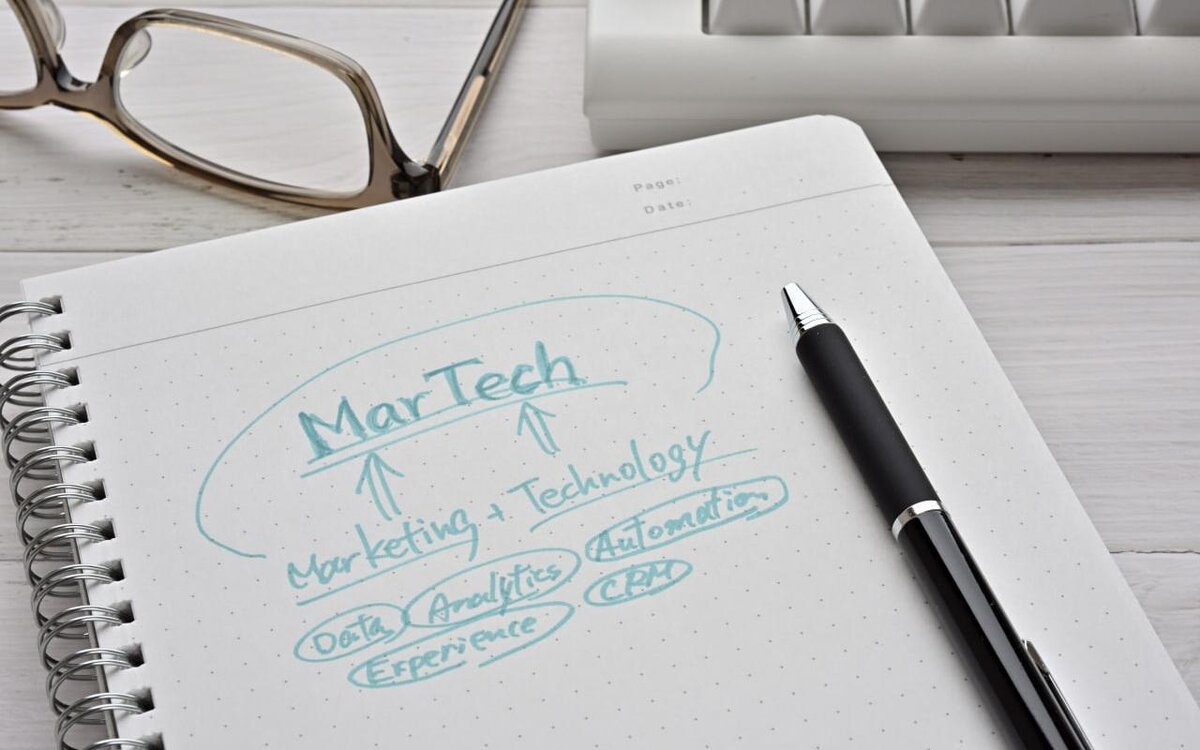 Page:
Date:
MarTech
Marketing + Technology
Data Analytics Automation
Experience CRM